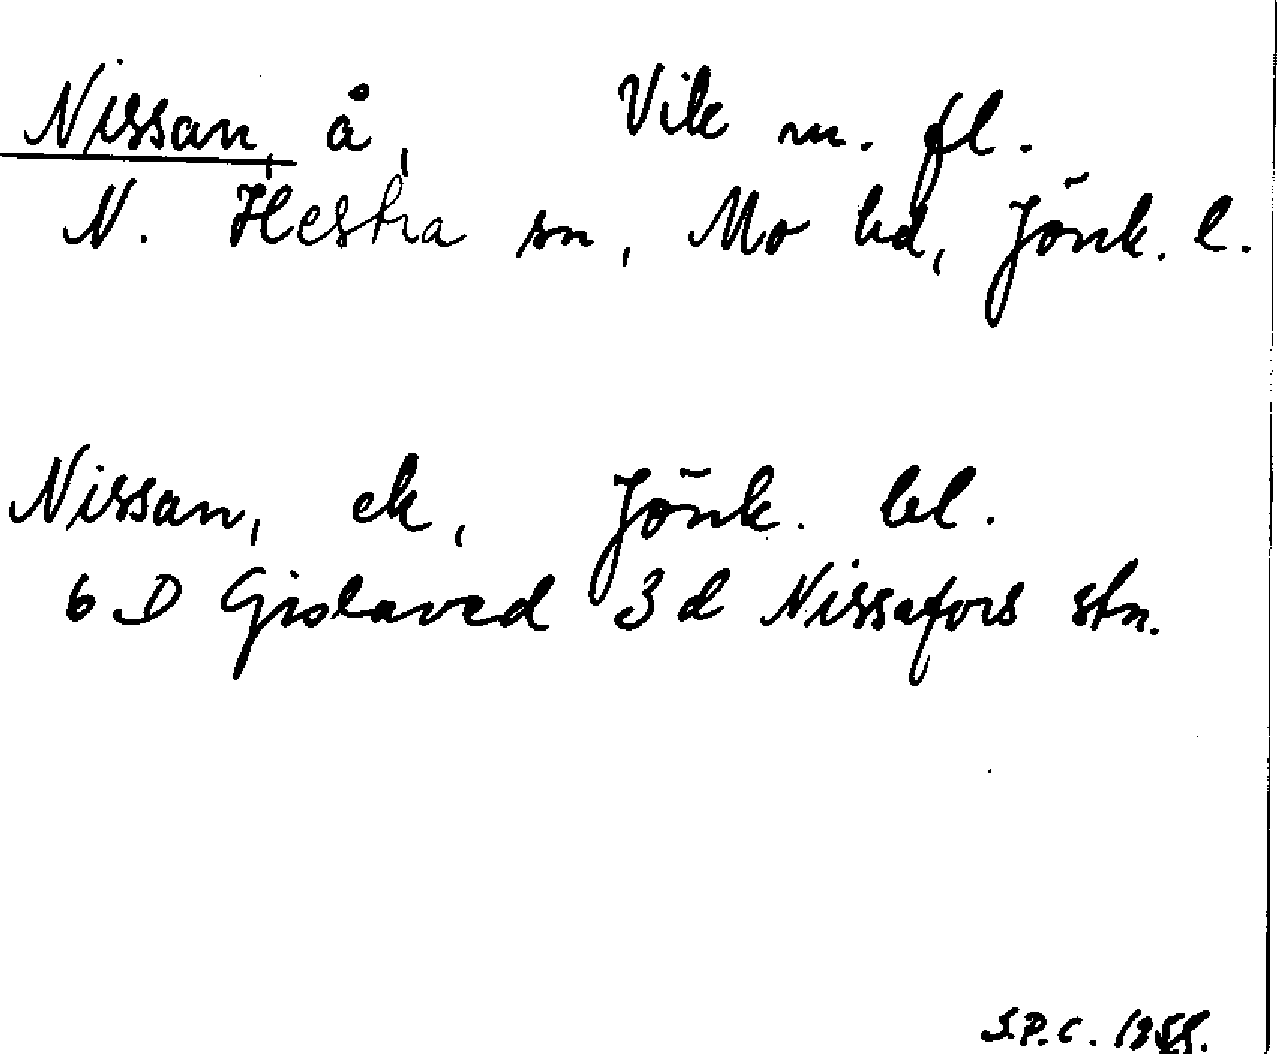 Nissan, å, Vik m. fl.
N. Hestra sn, Mo hd, Jönk. l.
Nissan, ek, Jönk. bl.
6 D Gislaved 3 d Nissafors stn.
S.P.C.